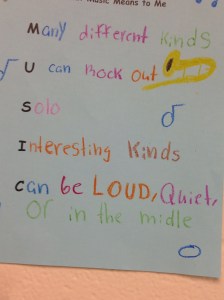 Music Means to Me
Many different kinds
U can Rock out
Solo
Interesting Kinds
Can be LOUD, Quiet,
Or in the midle